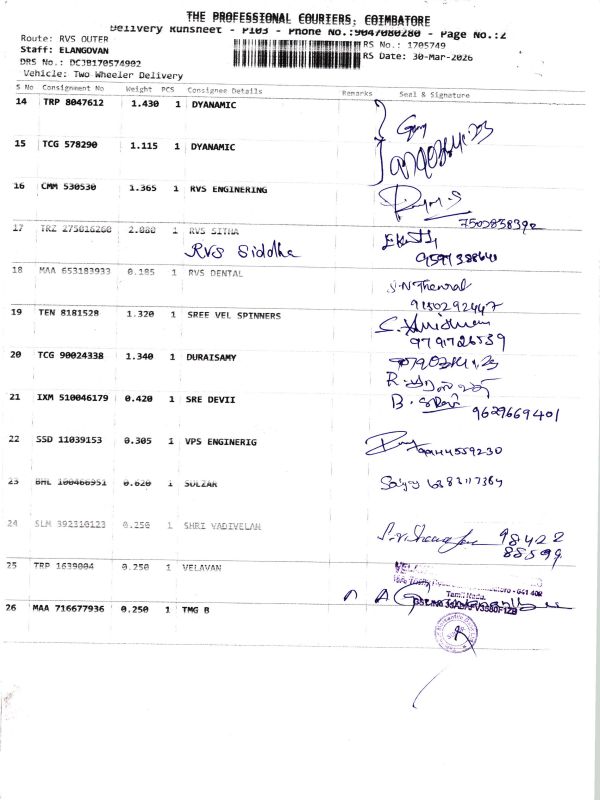 THE PROFESSIONAL COURIERS, COIMBATORE
Delivery Runsheet - P103 - Phone No.:9047080280 - Page No.:2
Route: RVS OUTER
RS No.: 1705749
Staff: ELANGOVAN
RS Date: 30-Mar-2026
DRS No.: DCJB170574902
Vehicle: Two Wheeler Delivery
S No Consignment No Weight PCS Consignee Details Remarks Seal & Signature
14 TRP 8047612 1.430 1 DYANAMIC
15 TCG 578290 1.115 1 DYANAMIC
16 CMM 530530 1.365 1 RVS ENGINERING
7502838392
17 TRZ 275016260 2.080 1 RVS SITHA
RVS Siddha
18 MAA 653183933 0.185 1 RVS DENTAL
9150292447
19 TEN 8181528 1.320 1 SREE VEL SPINNERS
9791726539
20 TCG 90024338 1.340 1 DURAISAMY
21 IXM 510046179 0.420 1 SRE DEVII
9629669401
22 SSD 11039153 0.305 1 VPS ENGINERIG
23 BHL 100466951 0.620 1 SULZAR
24 SLM 392310123 0.250 1 SHRI VADIVELAN
98422
88599
25 TRP 1639004 0.250 1 VELAVAN
Tamil Nadu
26 MAA 716677936 0.250 1 TMG B